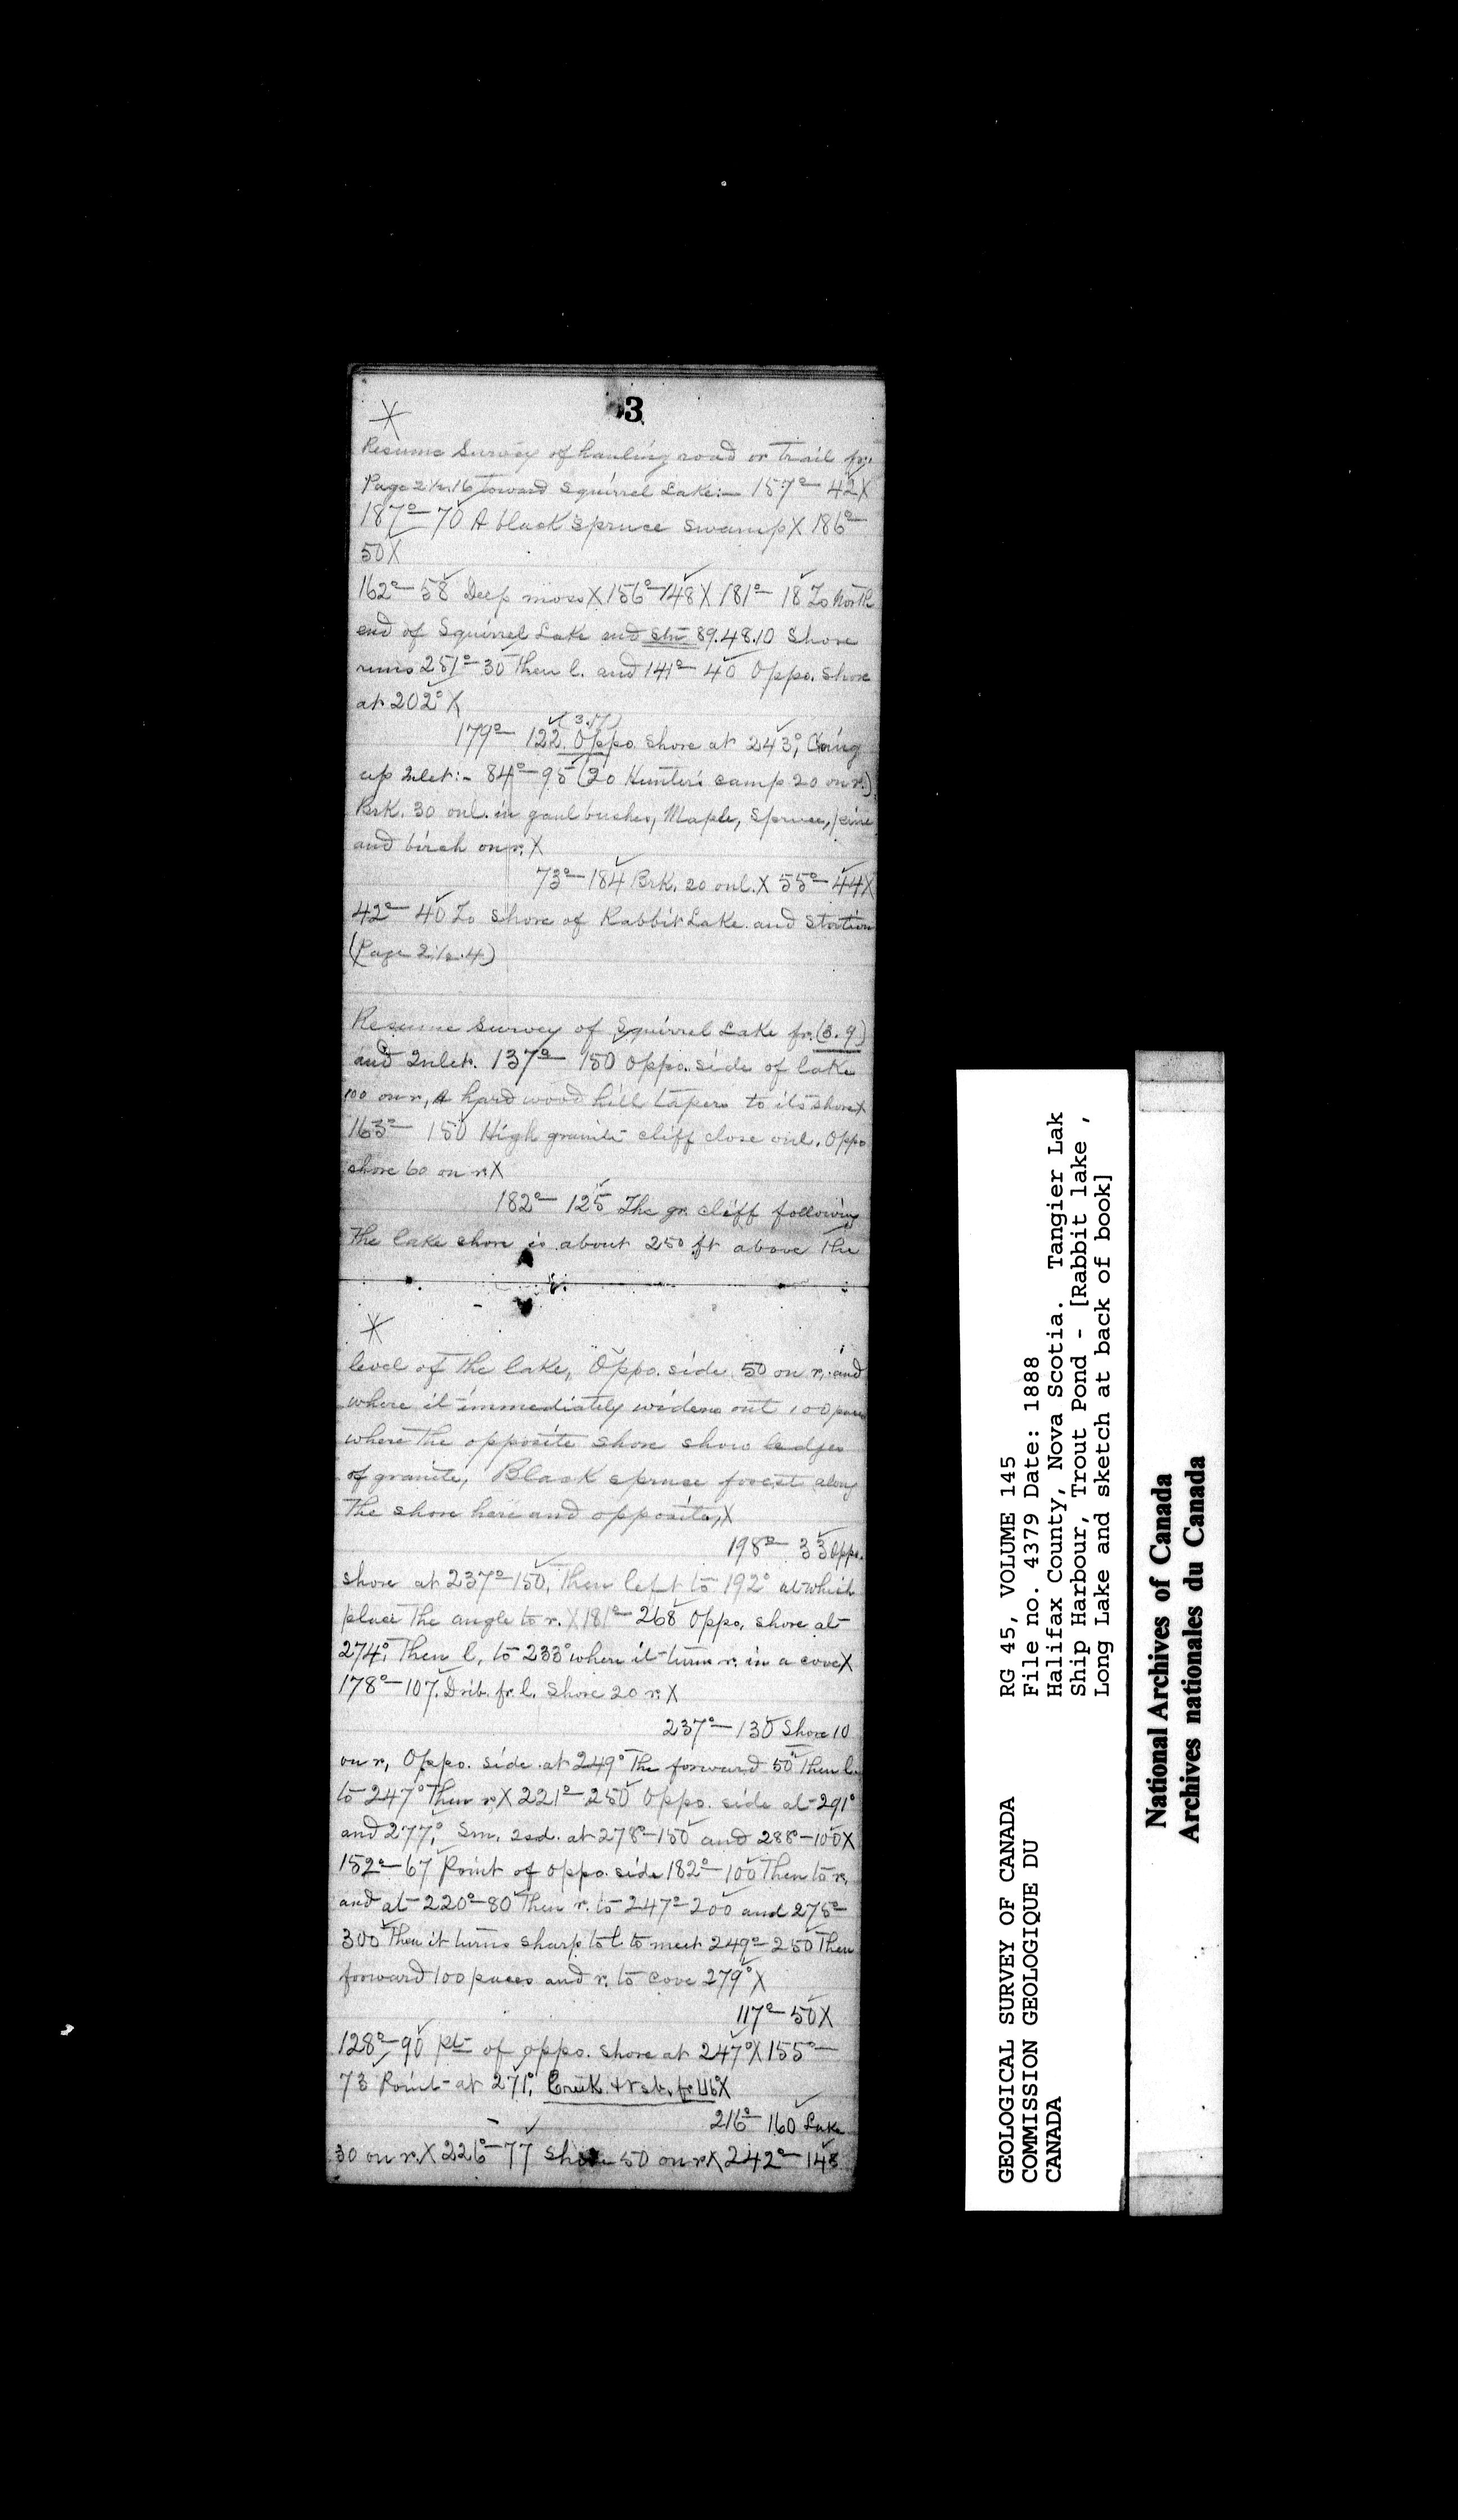 3
X
Resume Survey of hauling road or trail fr.
Page 2½.16 toward Squirrel Lake:- 157°- 42 X
187°- 70 A black spruce swamp X 186°-
50 X
162°- 58 Deep moss X 156°- 148 X 181°- 18 To North
end of Squirrel Lake and Stn 89.48.10 Shore
runs 251°- 30 Then l. and 141°- 40 Oppo. shore
at 202° X
(3.17)
179°- 122. Oppo. shore at 243°, Going
up Inlet:- 84°- 95 (20 Hunter's camp 20 on r.)
Brk. 30 on l. in gaul bushes, Maple, Spruce, pine
and birch on r. X
73°- 184 Brk. 20 on l. X 55°- 44 X
42°- 40 To shore of Rabbit Lake and station
(Page 2½.4)
Resume Survey of Squirrel Lake fr. (3.9)
and Inlet. 137°- 150 Oppo. side of lake
100 on r, A hard wood hill tapers to its shore X
163°- 150 High granite cliff close on l. Oppo
shore 60 on r. X
182°- 125 The gr. cliff following
The lake shore is about 250 ft above The
X
level of The lake, Oppo. side 50 on r. and
where it immediately widens out 100 paces
where The opposite shore show ledges
of granite, Black spruce forest along
The shore here and opposite, X
198°- 33 Oppo.
shore at 237°- 150, Then left to 192° at which
place The angle to r. X 181°- 268 Oppo, shore at
274°, Then l, to 233° where it turns r. in a cove X
178°- 107. fr. l. Shore 20 r. X
237°- 130 Shore 10
on r, Oppo. side at 249° The forward 50 Then l.
to 247° Then r. X 221°- 250 Oppo. side at 291°
and 277°, Sm. isd. at 278°- 150 and 288°- 100 X
152°- 67 Point of oppo. side 182°- 100 Then to r,
and at 220°- 80 Then r. to 247°- 200 and 275°-
300 Then it turns sharp to l to meet 249°- 250 Then
forward 100 paces and r. to cove 279° X
117°- 50 X
128°- 90 pt of oppo. shore at 247° X 155°-
73 Point at 271°, Creek fr. 46° X
216°- 160 Lake
30 on r. X 226°- 77 Shore 50 on r. X 242°- 148
RG 45, VOLUME 145
File no. 4379 Date: 1888
Halifax County, Nova Scotia. Tangier Lak
Ship Harbour, Trout Pond - [Rabbit lake ,
Long Lake and sketch at back of book]
GEOLOGICAL SURVEY OF CANADA
COMMISSION GEOLOGIQUE DU
CANADA
National Archives of Canada
Archives nationales du Canada